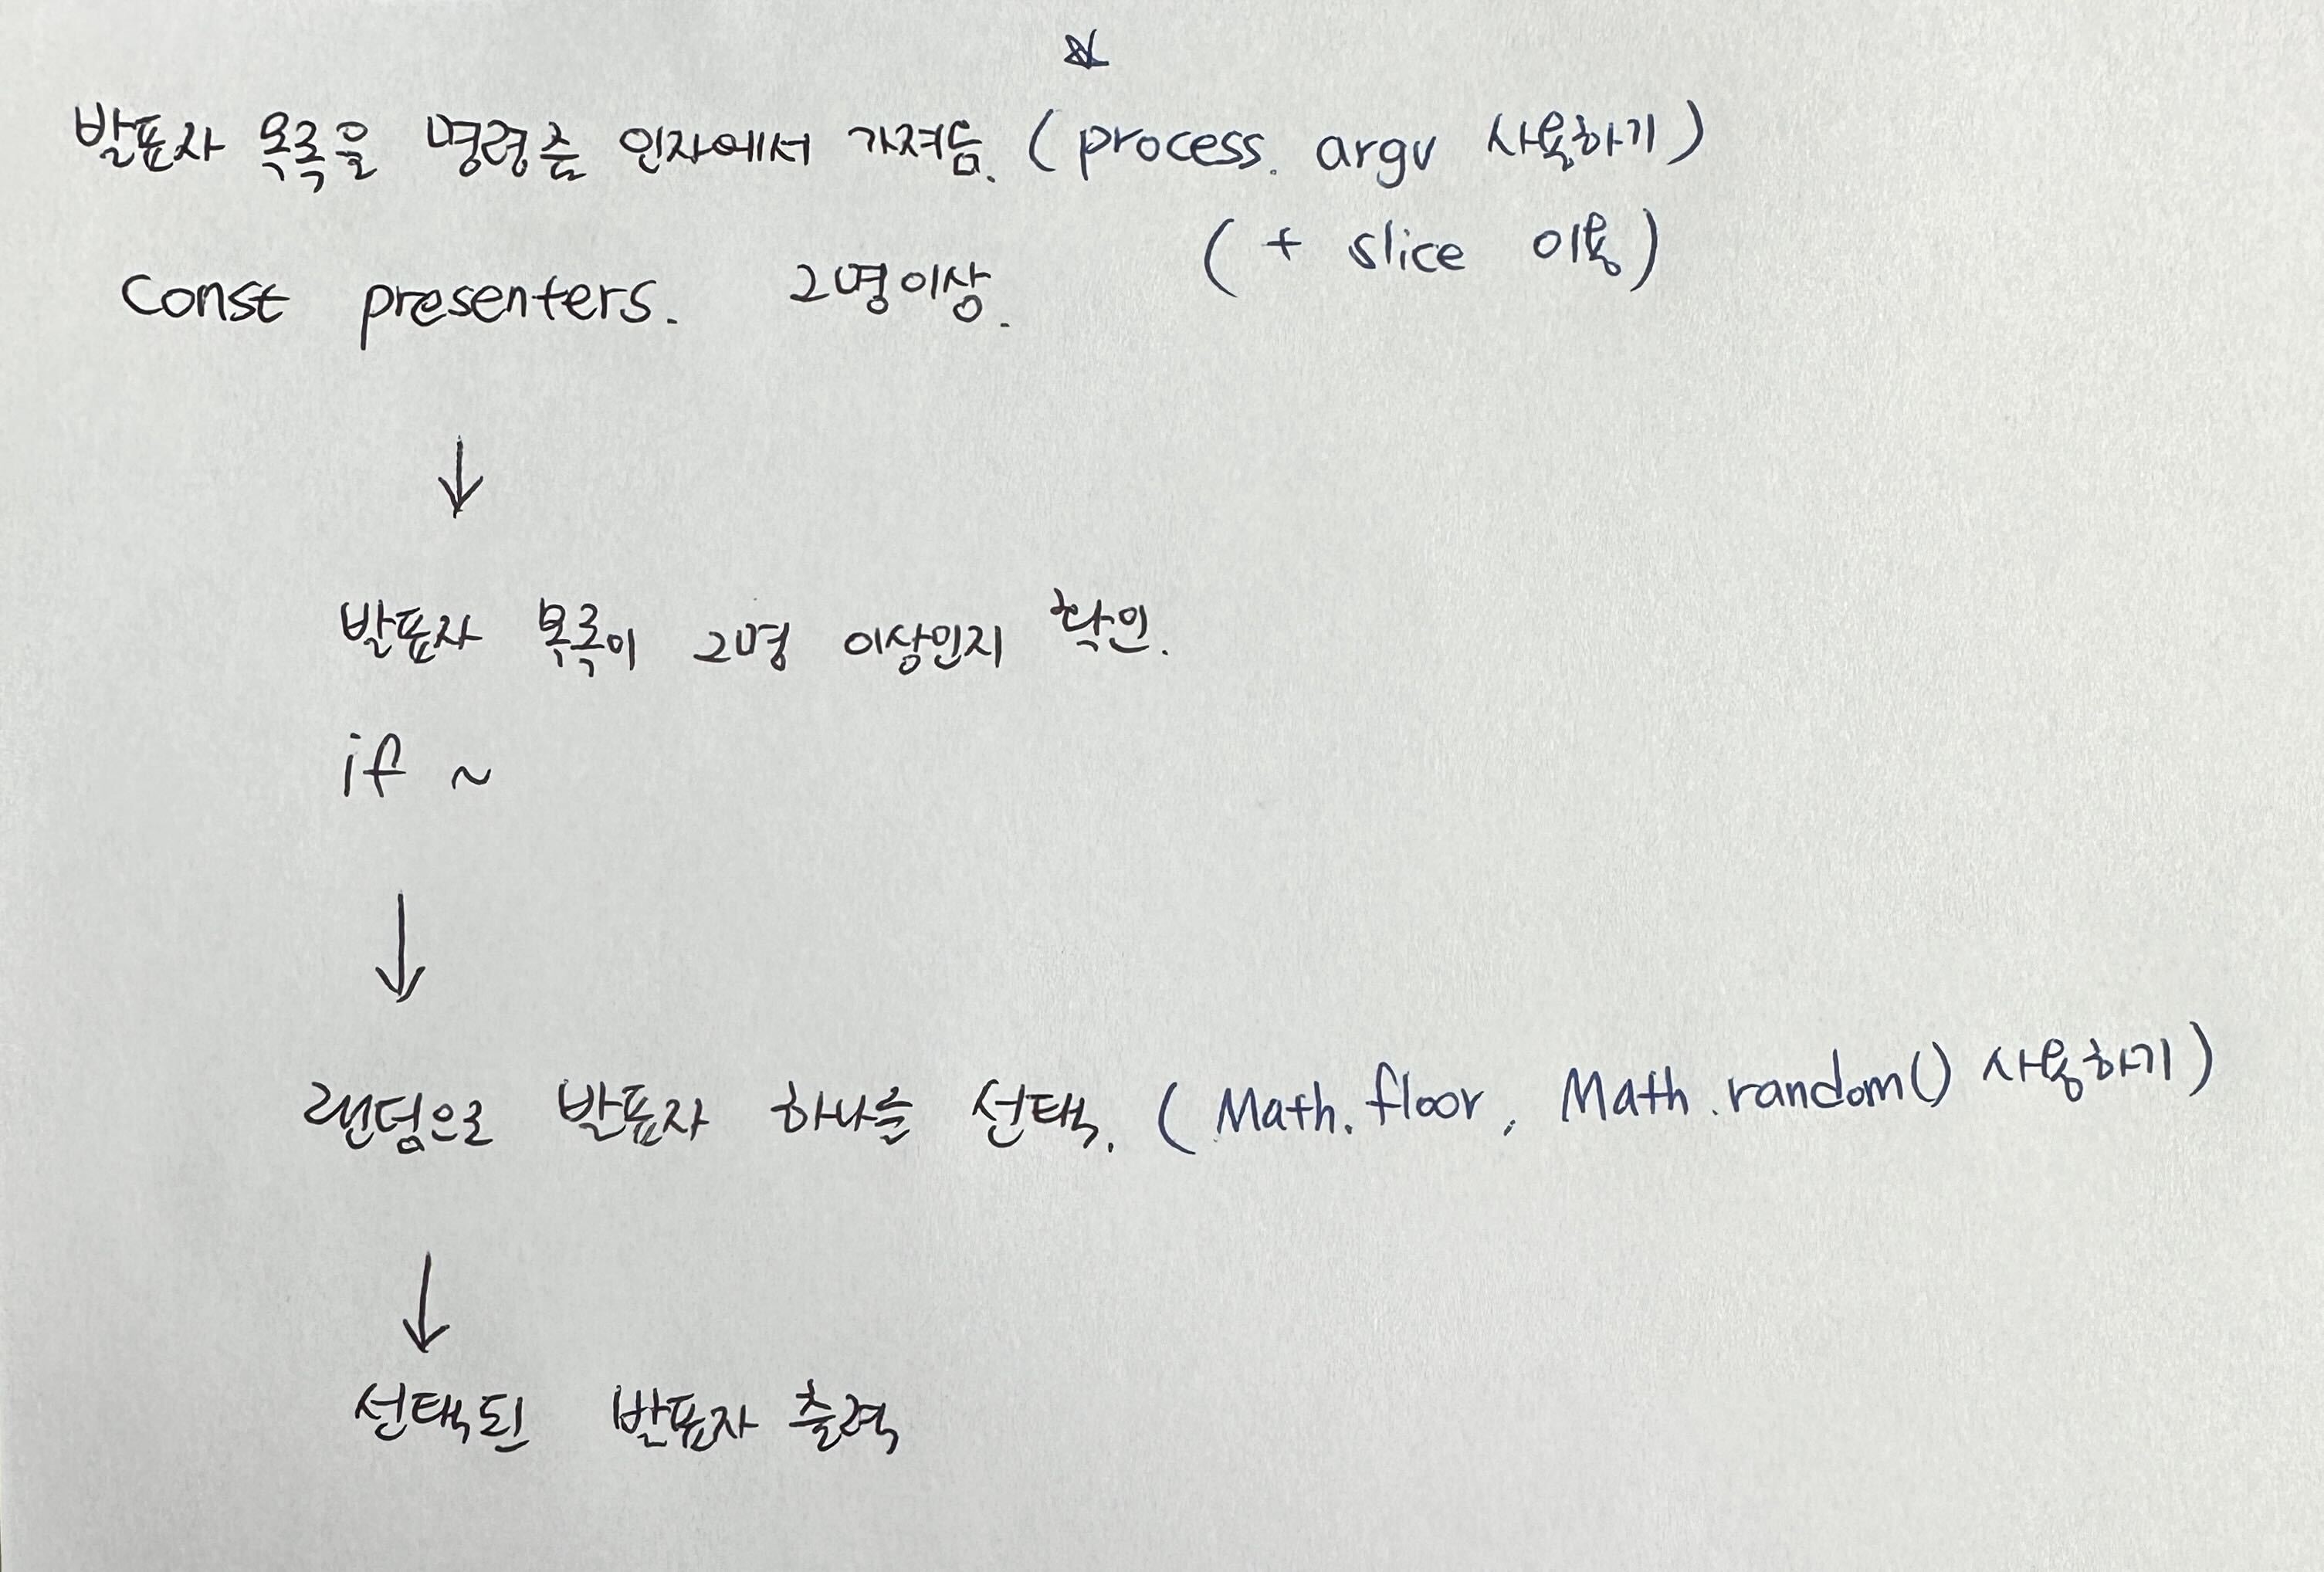 발표자 목록을 명령줄 인자에서 가져옴. (process. argv 사용하기)
(+ slice 이용)
const presenters. 2명이상.
발표자 목록이 2명 이상인지 확인.
if ~
랜덤으로 발표자 하나를 선택. (Math. floor, Math. random() 사용하기)
선택된 발표자 출력